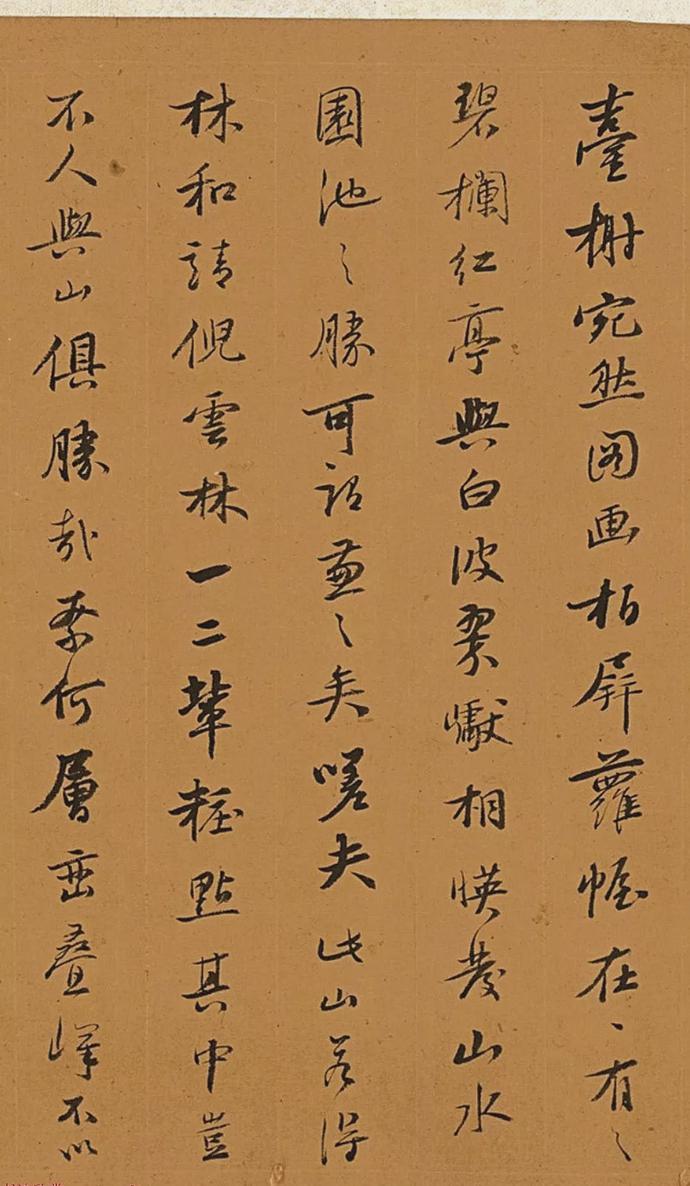 臺榭宛然图画柏屏蘿幄在〻有〻
碧欄红亭與白波翠巘相暎發山水
園池〻勝可謂兼〻矣嗟夫此山若得
林和靖倪雲林一二輩粧點其中豈
不人與山俱勝哉奈何層巒疊嶂不以